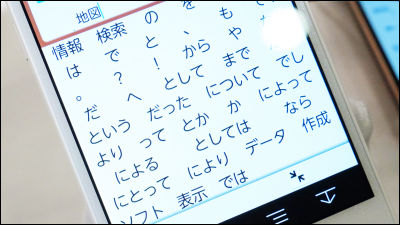 地図
情報 検索 の を
は で と 、 も
。 ? ! から や
だ へ として まで
という だった について でし
より って とか か によって
による としては なら
にとって により データ 作成
ソフト 表示 では